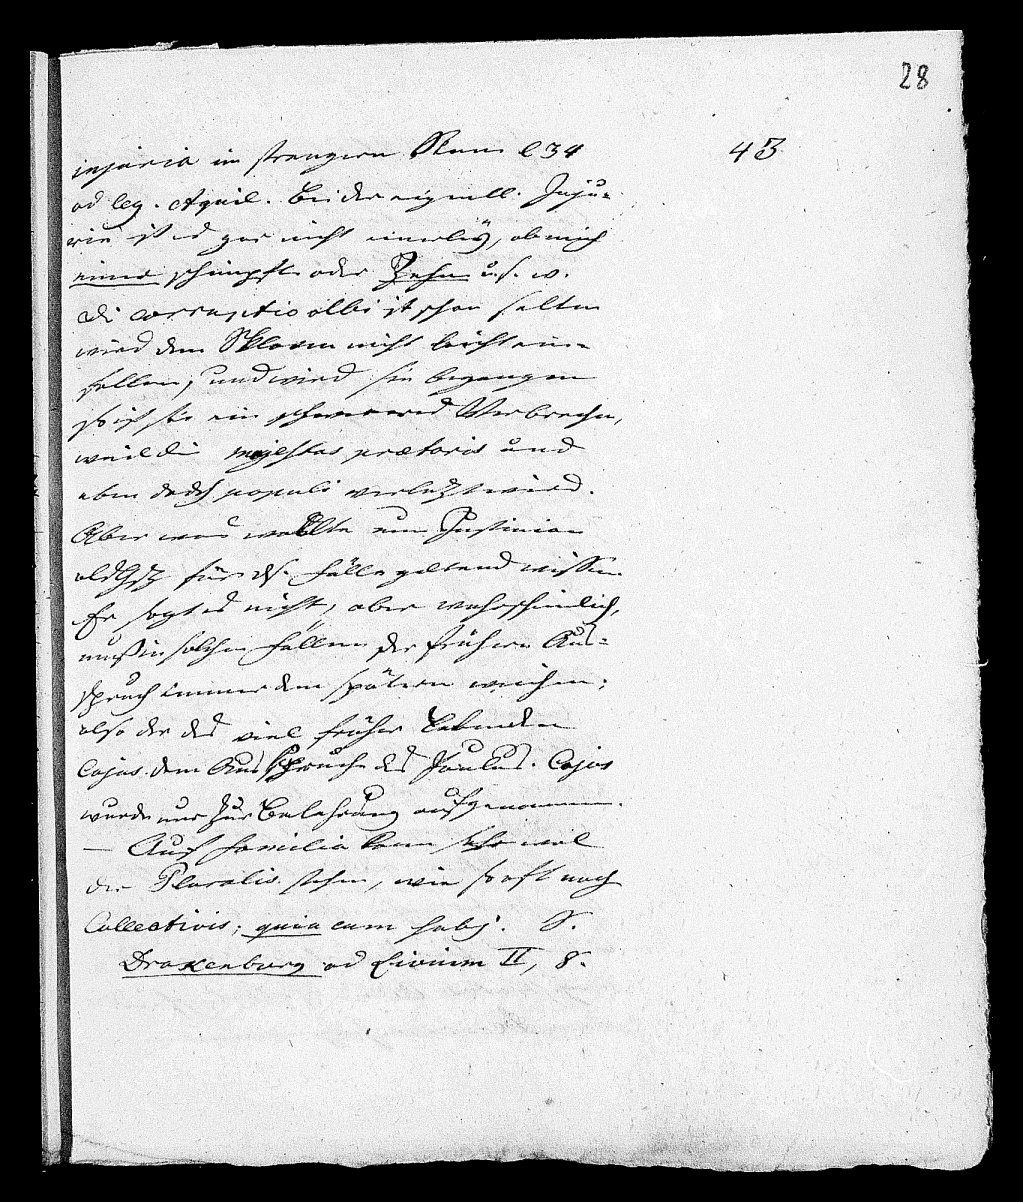 28
43
injuria im strengern Sinn l 34
ad leg. Aquil. Bei der eigentl. Inju-
rie ist es gar nicht einerley, ob mich
einer schimpft oder Zehn u. s. w.
die corruptio albi ist schon selten
wird dem Sklaven nicht leicht ein-
fallen, und wird sie begangen
so ist sie ein schweres Verbrechen,
weil die majestas praetoris und
eben dadch populi verletzt wird.
Aber was wollte nun Justinian
als Gesz für ds. Fälle geltend wissen.
Er sagt es nicht, aber wahrscheinlich,
muß in solchen Fällen der frühere Aus-
spruch immer dem spätern weichen;
also der des viel früher lebenden
Cajus dem Ausspruche des Paulus. Cajus
wurde nur zur Belehrung aufgenommen.
— Auf familia kann sehr wol
der Pluralis stehen, wie so oft nach
Collectivis; quia cum
S.
Drakenburg ad Livium II, 8.